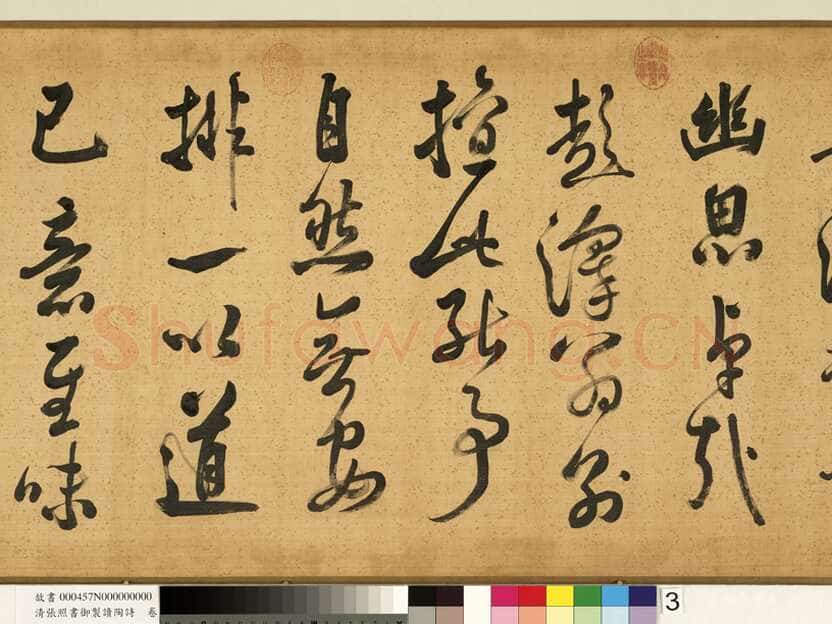 幽思卓哉
彭澤翁別
擅此能事
自然無安
排一以道
已意至味
Shufawang.CN
故書 000457N000000000
清張照書御製讀陶詩 卷
3